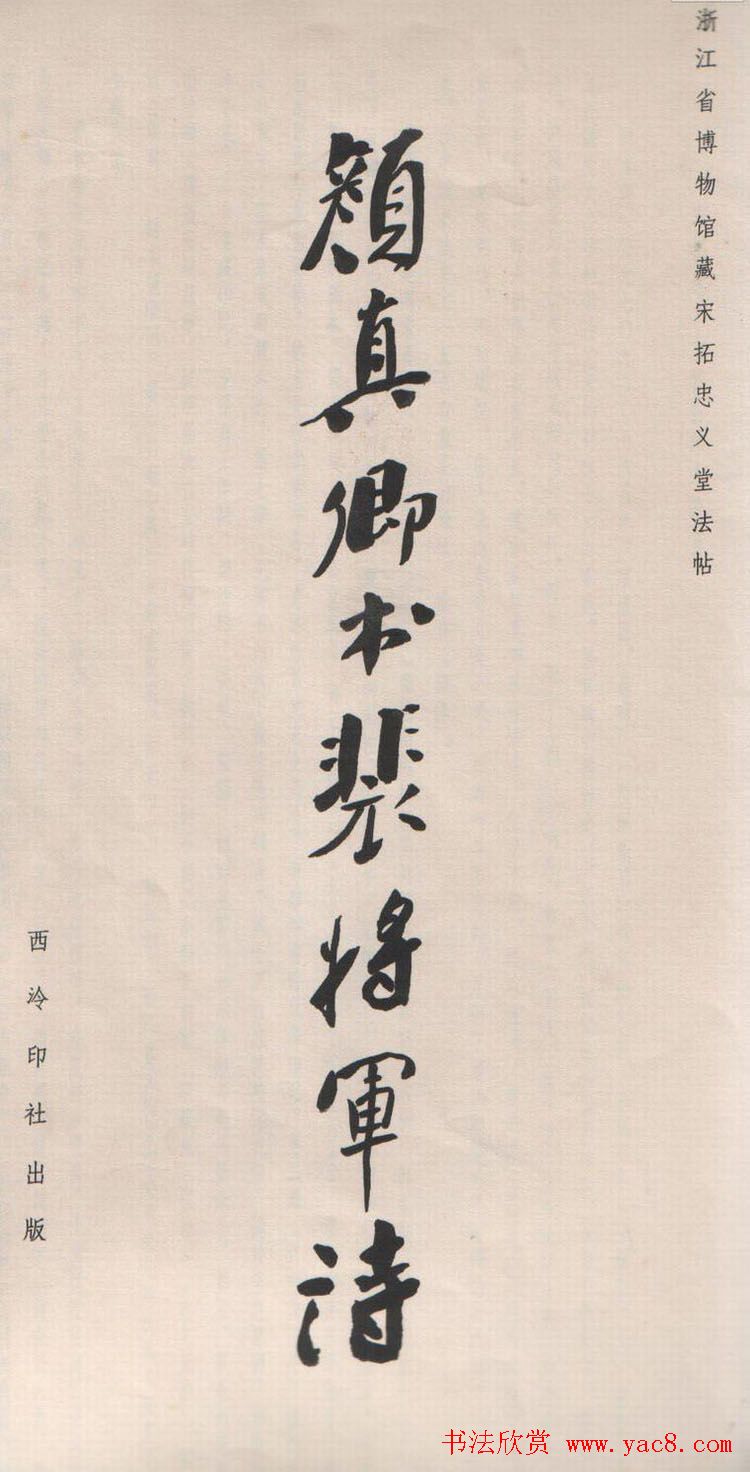 浙江省博物馆藏宋拓忠义堂法帖
顔真卿书裴将軍诗
西泠印社出版
书法欣赏 www.yac8.com